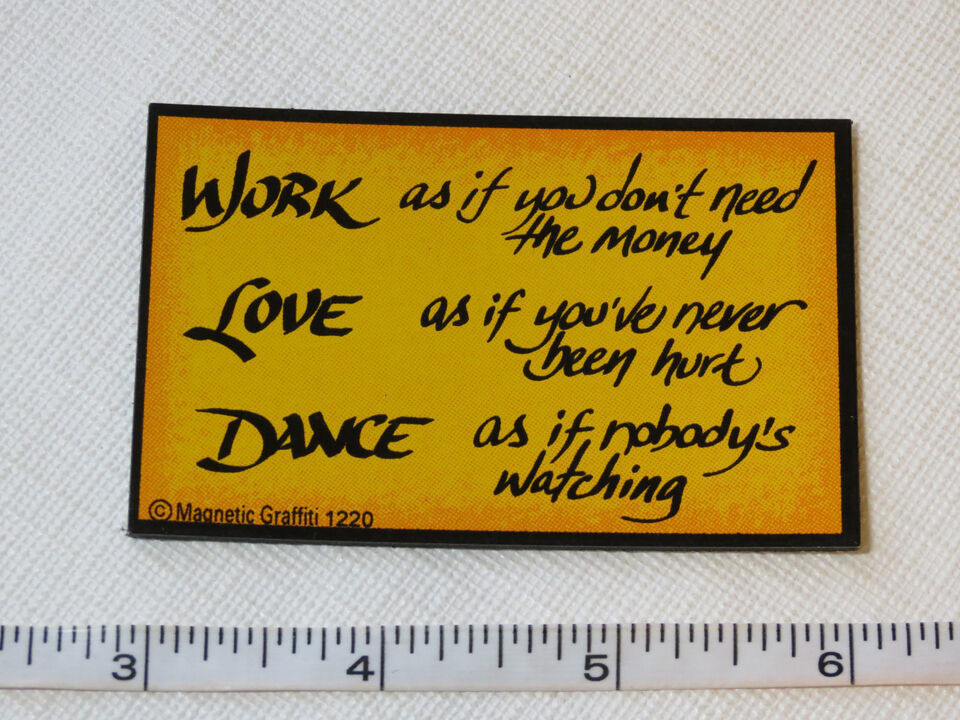 WORK as if you don't need
the money
LOVE as if you've never
been hurt
DANCE as if nobody's
watching
© Magnetic Graffiti 1220
3 4 5 6